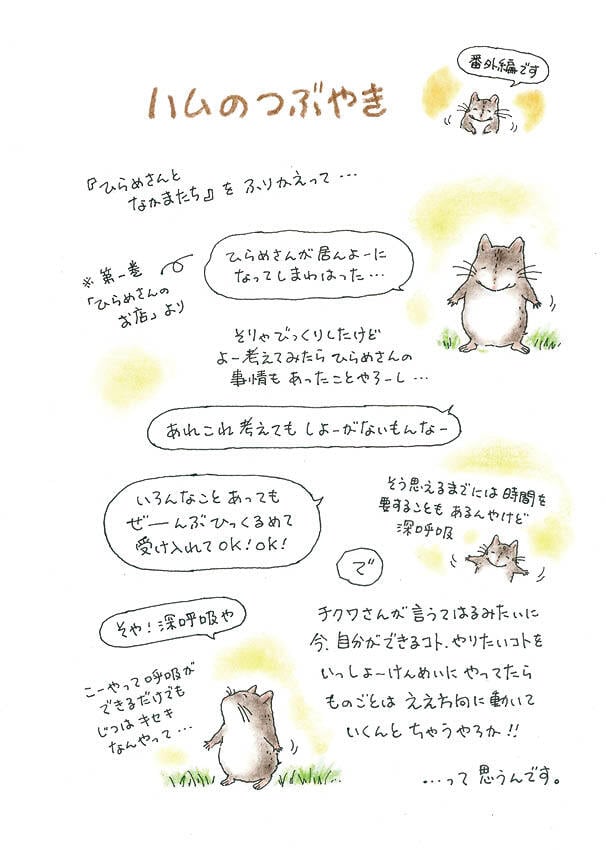 番外編です
ハムのつぶやき
『ひらめさんと
なかまたち』を ふりかえって…
ひらめさんが居んよーに
なってしまわはった…
※ 第一巻
「ひらめさんの
お店」より
そりゃびっくりしたけど
よー考えてみたら ひらめさんの
事情も あったことやろーし…
あれこれ 考えても しよーがないもんなー
いろんなこと あっても
ぜーーんぶひっくるめて
受け入れて OK! OK!
そう思えるまでには 時間を
要することも あるんやけど
深呼吸
で
そや! 深呼吸や
こーやって呼吸が
できるだけでも
じつは キセキ
なんやって…
チクワさんが 言うてはるみたいに
今、自分ができるコト、やりたいコトを
いっしょーけんめいに やってたら
ものごとは ええ方向に動いて
いくんと ちゃうやろか!!
…って 思うんです。